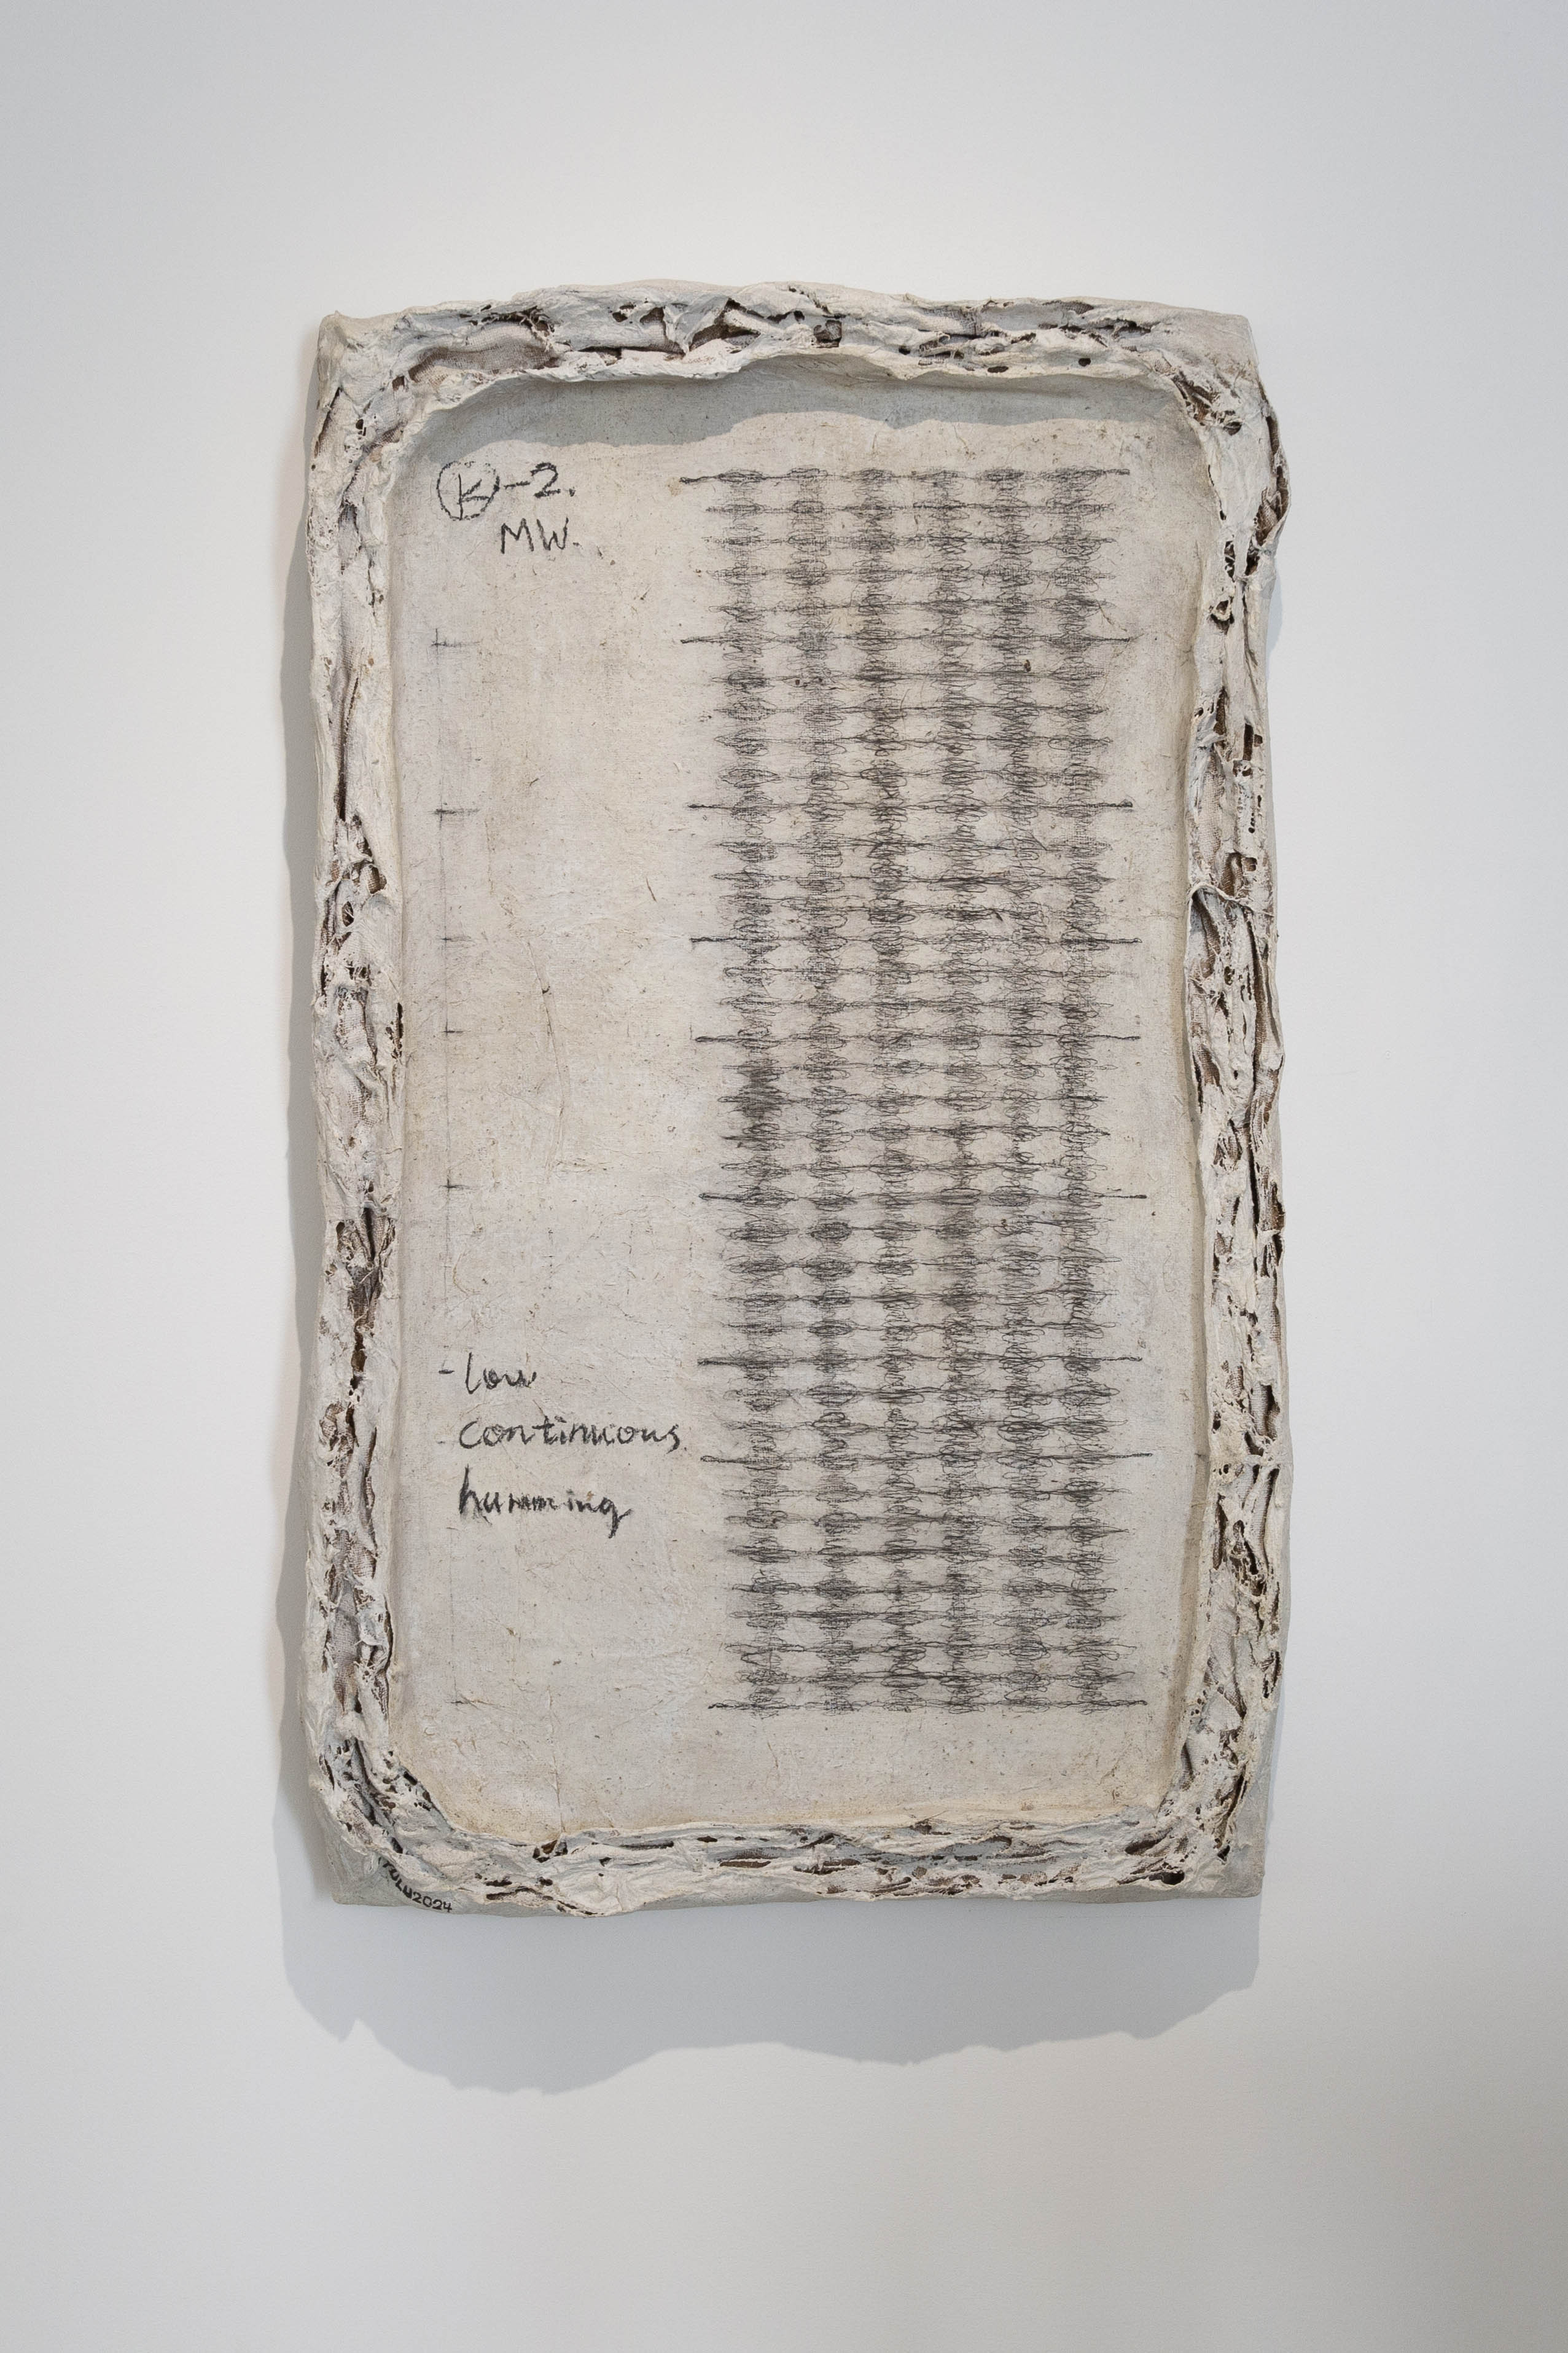 Ⓚ-2.
MW.
-low
continuous
humming
2024